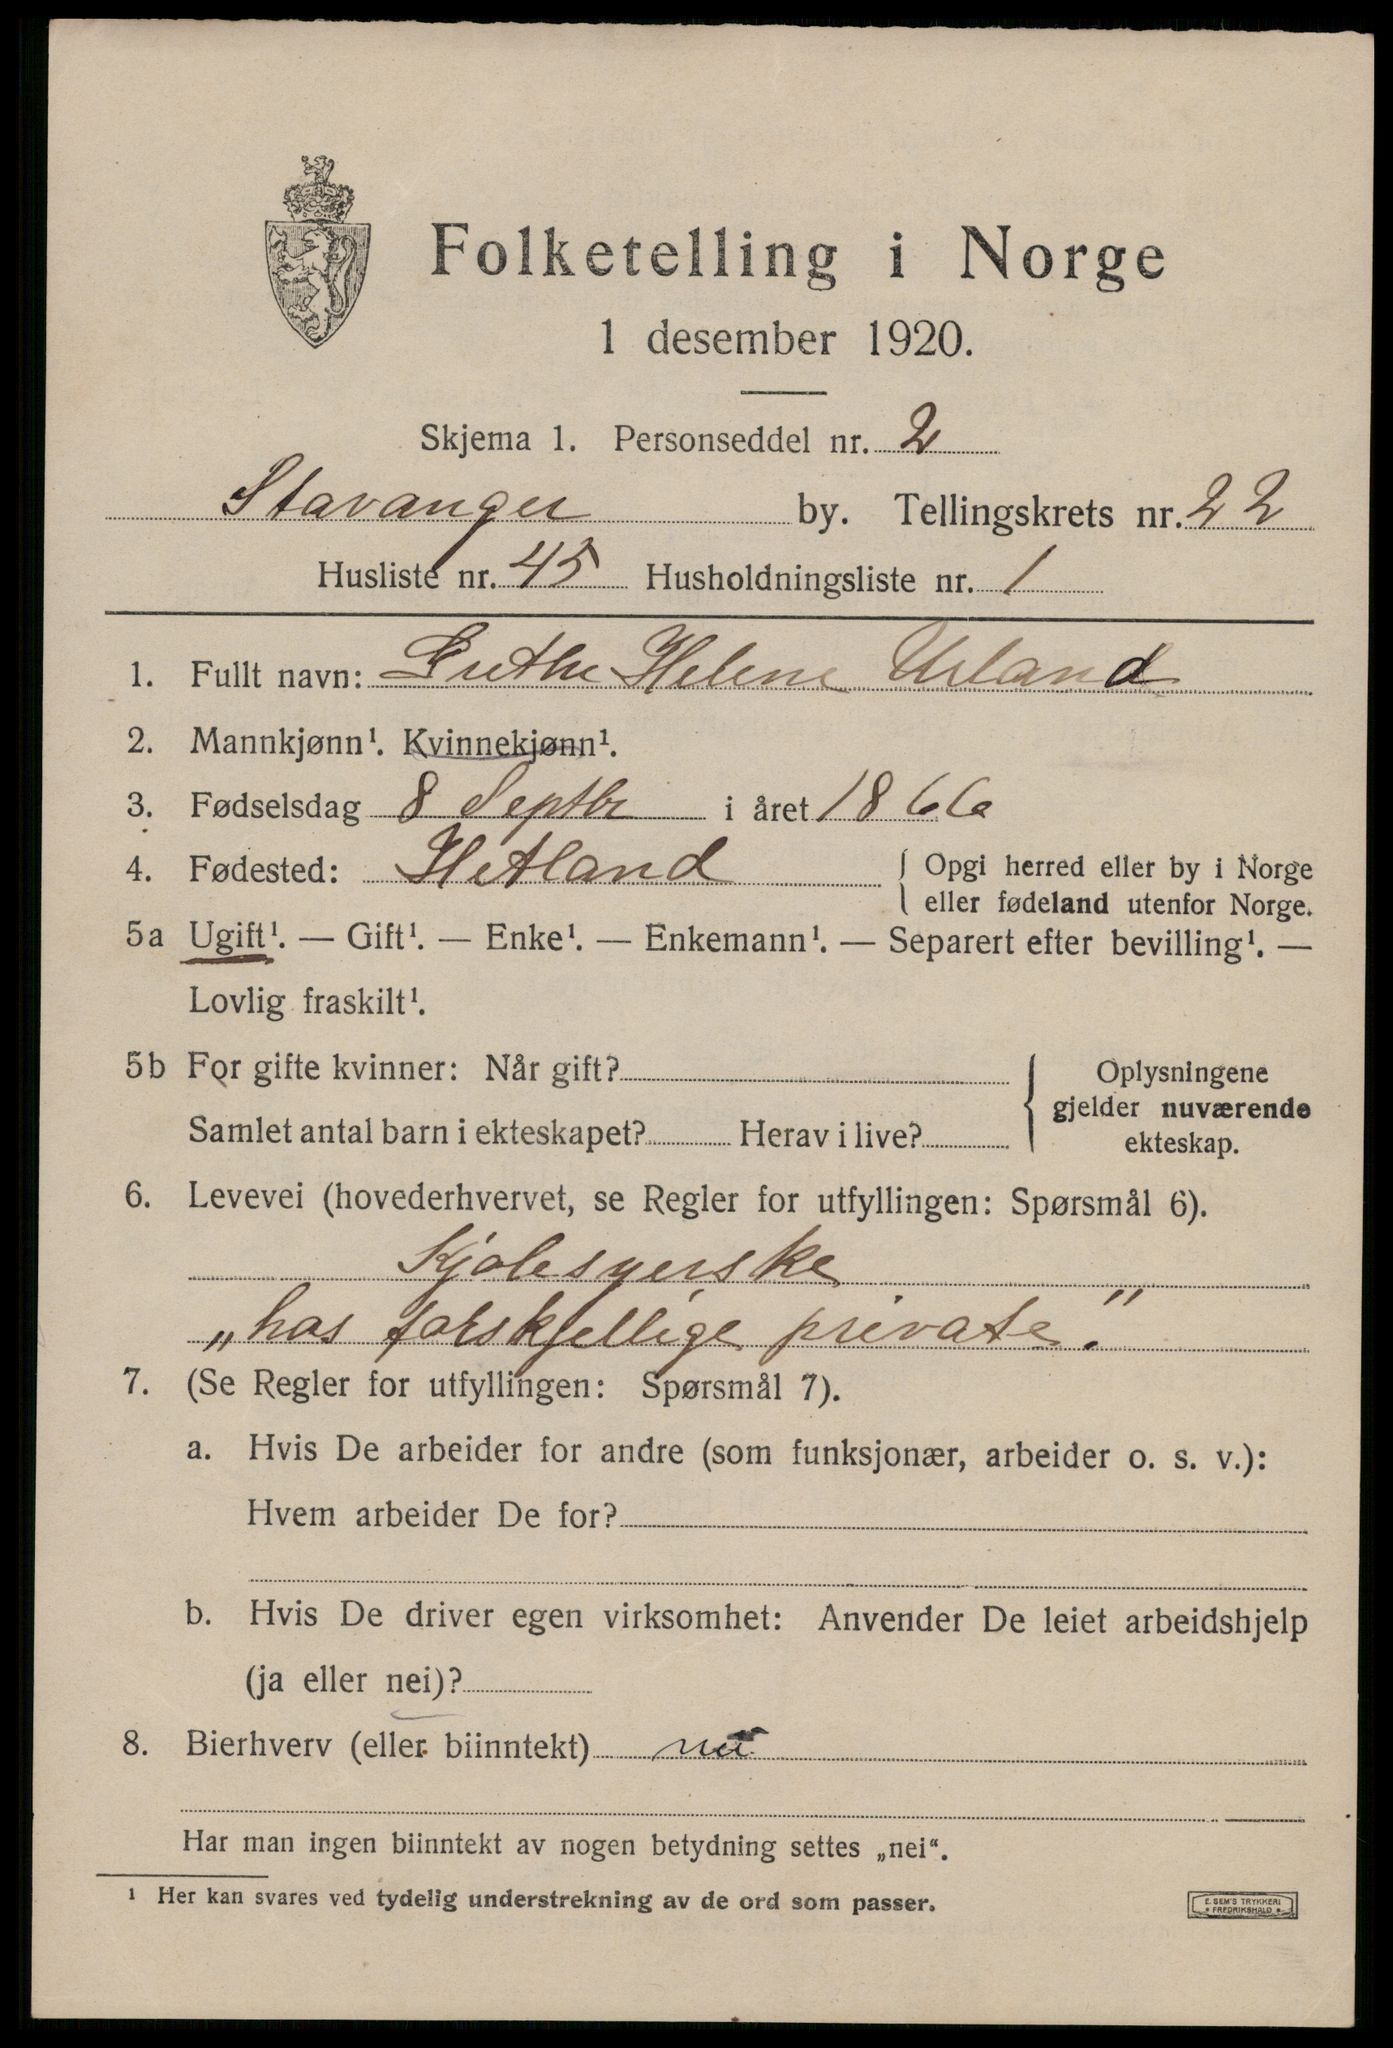 Folketelling i Norge
1 desember 1920.
Skjema 1. Personseddel nr. 2
Stavanger by. Tellingskrets nr. 22
Husliste nr. 45 Husholdningsliste nr. 1
1. Fullt navn: Helene Usland
2. Mannkjønn¹. Kvinnekjønn¹.
3. Fødselsdag 8 Septbr i året 1866
4. Fødested: Hetland { Opgi herred eller by i Norge
eller fødeland utenfor Norge.
5a Ugift¹. — Gift¹. — Enke¹. — Enkemann¹. — Separert efter bevilling¹. —
Lovlig fraskilt¹.
5b For gifte kvinner: Når gift?
Samlet antal barn i ekteskapet? Herav i live?
Oplysningene
gjelder nuværende
ekteskap.
6. Levevei (hovederhvervet, se Regler for utfyllingen: Spørsmål 6).
Kjolesyerske
„hos forskjellige private."
7. (Se Regler for utfyllingen: Spørsmål 7).
a. Hvis De arbeider for andre (som funksjonær, arbeider o. s. v.):
Hvem arbeider De for?
b. Hvis De driver egen virksomhet: Anvender De leiet arbeidshjelp
(ja eller nei)?
8. Bierhverv (eller biinntekt) nei
Har man ingen biinntekt av nogen betydning settes „nei“.
¹ Her kan svares ved tydelig understrekning av de ord som passer.
E. SEM'S TRYKKERI
FREDRIKSHALD